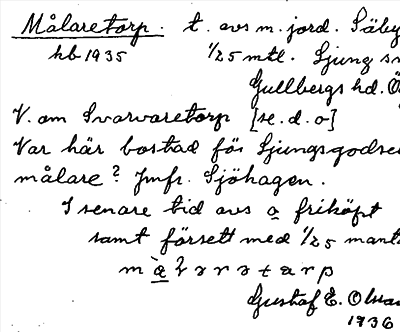 Målaretorp. t. avs m. jord. Säby
hb 1935 1/25 mtl. Ljung sn
Gullbergs hd. Ö
V. om Svarvaretorp [se. d. o]
Var här bostad för Ljungsgodsens
målare? Jmfr. Sjöhagen.
I senare tid avs o friköpt
samt försett med 1/25 mantal
Gustaf E. Olsson
1936